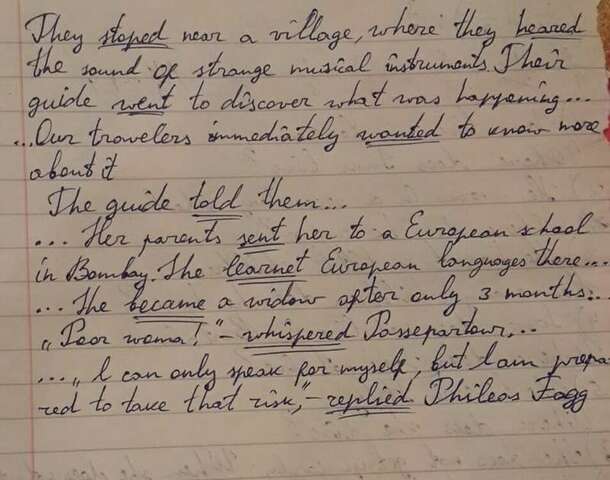 They stoped near a village, where they heared
the sound of strange musical instruments. Their
guide went to discover what was happening...
...Our travelers immediately wanted to know more
about it
The guide told them...
... Her parents sent her to a European school
in Bombay. She learnet European languages there...
... She became a widow after only 3 months...
„Poor woma!" - whispered Passepartour...
...„I can only speak for myself, but I am prepa
red to take that risk," - replied Phileas Fogg